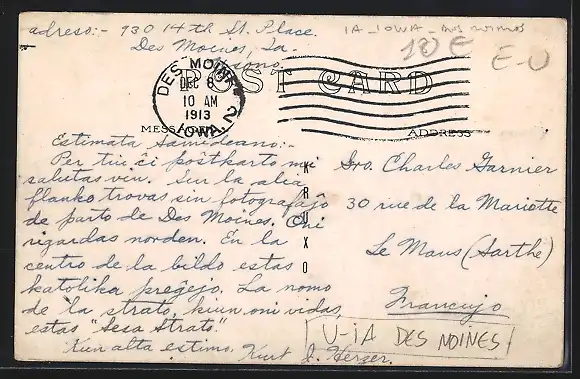 adreso:- 930 14th St. Place.
Des Moines, Ia.
Usono.
IA - IOWA - DES MOINES
10 E
E-U
POST CARD
DES MOINES
DEC 8
10 AM
1913
IOWA
2
MESSAGE
ADDRESS
Estimata Samideano:-
Per tiu ĉi poŝtkarto mi
salutas vin. Sur la alia
flanko trovas sin fotografaĵo
de parto de Des Moines. Oni
rigardas norden. En la
centro de la bildo estas
katolika preĝejo. La nomo
de la strato, kiun oni vidas,
estas "Sesa Strato."
Kun alta estimo, Kurt J. Herzer.
KRUXO
Sro. Charles Garnier
30 rue de la Mariotte
Le Mans (Sarthe)
Francujo
U-IA DES MOINES